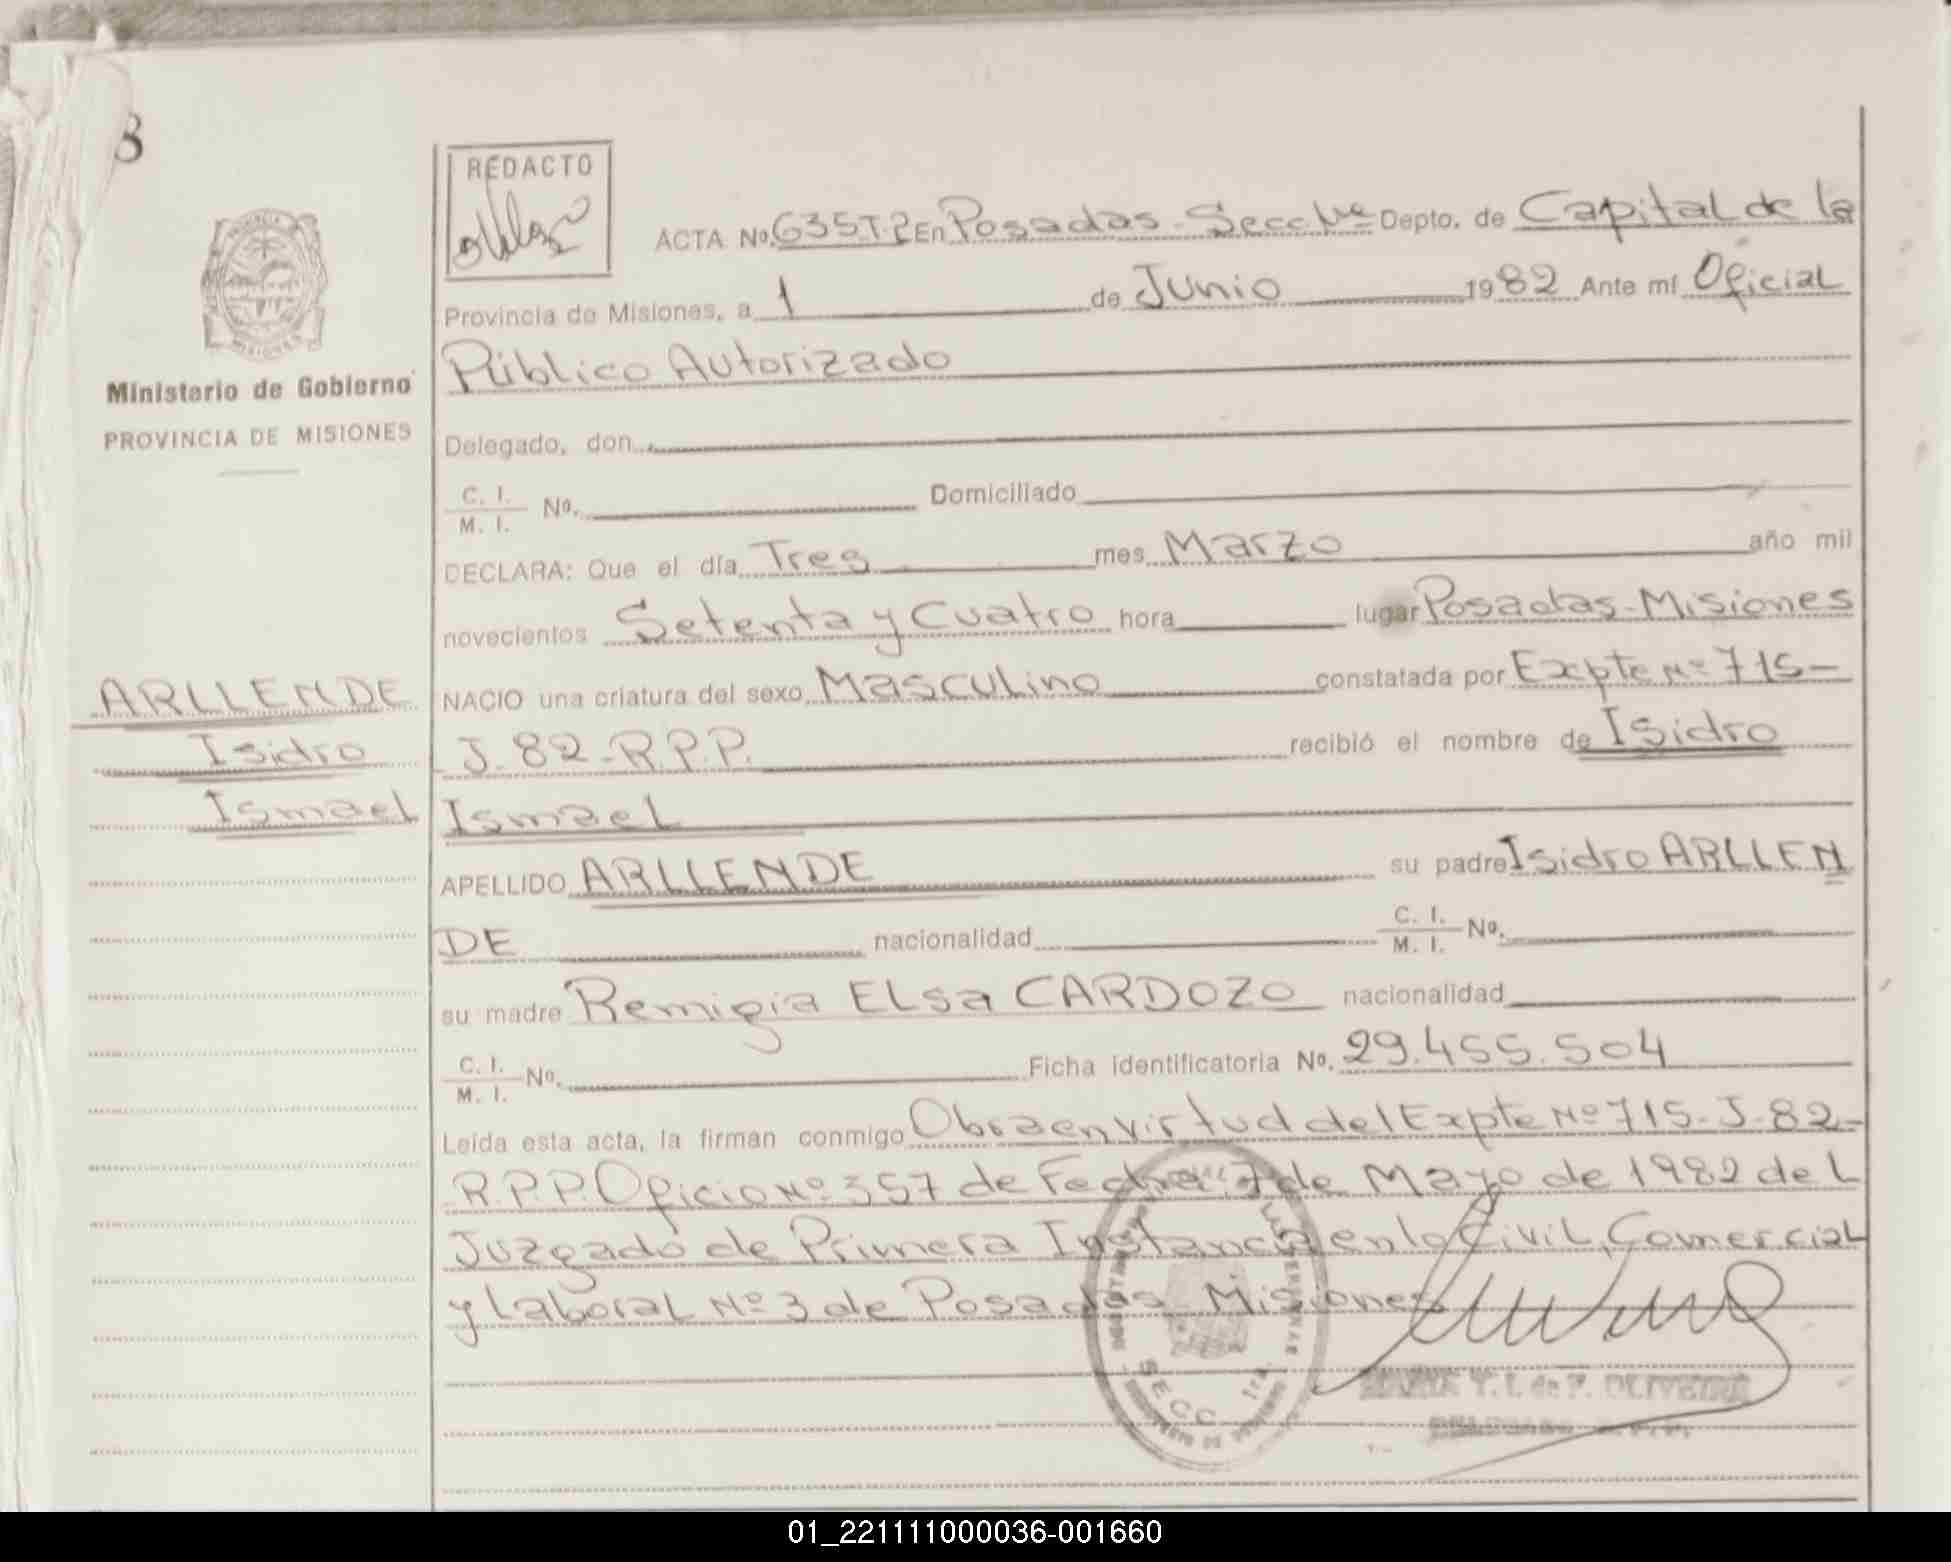 3
REDACTO
ACTA No. 635T.2 En Posadas - Secc 1ra Depto. de Capital de la
Provincia de Misiones, a 1 de Junio 1982 Ante mí Oficial
Público Autorizado
Ministerio de Gobierno
PROVINCIA DE MISIONES
Delegado, don
C. I.
M. I. No. Domiciliado
DECLARA: Que el día Tres mes Marzo año mil
novecientos Setenta y Cuatro hora lugar Posadas-Misiones
ARLLENDE
NACIO una criatura del sexo Masculino constatada por Expte Nº 715-
Isidro
J.82-R.P.P. recibió el nombre de Isidro
Ismael
Ismael
APELLIDO ARLLENDE su padre Isidro ARLLEN
DE nacionalidad C. I.
M. I. No.
su madre Remigia ELsa CARDOZO nacionalidad
C. I.
M. I. No. Ficha identificatoria No. 29.455.504
Leída esta acta, la firman conmigo Obra en virtud del Expte Nº 715-J-82-
R.P.P. Oficio Nº 357 de Fecha 7 de Mayo de 1982 del
Juzgado de Primera Instancia en lo Civil, Comercial
y Laboral Nº 3 de Posadas - Misiones
SECC. 1ra.
OLIVEIRA
01_221111000036-001660